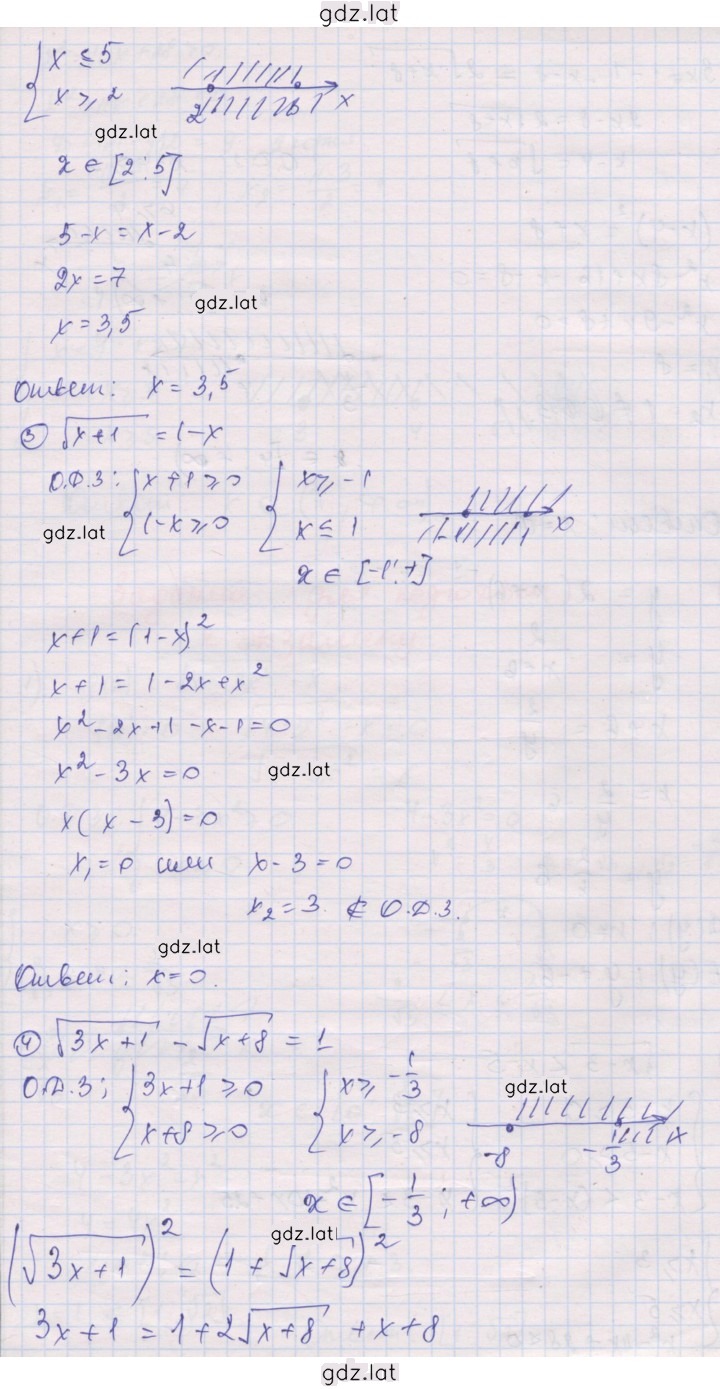 gdz.lat
{ x ≤ 5
{ x ≥ 2
2 5 x
gdz.lat
x ∈ [2; 5]
5-x = x-2
2x = 7
gdz.lat
x = 3,5
Ответ: x = 3,5
③ √(x+1) = 1-x
О.Д.З: { x+1 ≥ 0 { x ≥ -1
{ 1-x ≥ 0 { x ≤ 1
-1 x
gdz.lat
x ∈ [-1; 1]
x+1 = (1-x)²
x+1 = 1-2x+x²
x²-2x+1-x-1=0
x²-3x=0
gdz.lat
x(x-3)=0
x₁=0 или x-3=0
x₂=3 ∉ О.Д.З.
gdz.lat
Ответ: x=0.
④ √(3x+1) - √(x+8) = 1
О.Д.З: { 3x+1 ≥ 0 { x ≥ -1/3
{ x+8 ≥ 0 { x ≥ -8
gdz.lat
-8 -1/3 x
x ∈ [-1/3; +∞)
gdz.lat
(√(3x+1))² = (1+√(x+8))²
3x+1 = 1+2√(x+8) +x+8
gdz.lat